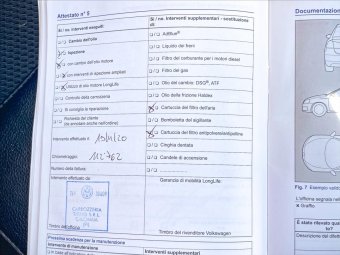 Documentazione
Attestato n° 5
Si / no. Interventi eseguiti:
Si / no. Interventi supplementari - sostituzione di:
Cambio dell'olio
Ispezione
con cambio dell'olio motore
con interventi di ispezione ampliati
Utilizzo di olio motore LongLife
Controllo della carrozzeria
Si consiglia la riparazione
Richiesta del cliente
(se annotare anche nell'ordine)
Intervento effettuato il:
Chilometraggio: 112762
Numero della fattura:
Intervento effettuato da:
CARROZZERIA
Timbro dell'officina
AdBlue®
Liquido dei freni
Filtro del carburante per motori diesel
Filtro del gas
Olio del cambio: DSG®, ATF
Olio della frizione Haldex
Cartuccia del filtro dell'aria
Bomboletta del sigillante
Cartuccia del filtro antipolvere/antipolline
Cinghia dentata
Candele di accensione
Garanzia di mobilità LongLife:
Timbro del rivenditore Volkswagen
Prossima scadenza per la manutenzione
Intervento di manutenzione
Interventi supplementari
Fig. 7 Esempio valido
L'officina segnala nell
× Graffio
È stato rilevato qual
Descrizione del difett